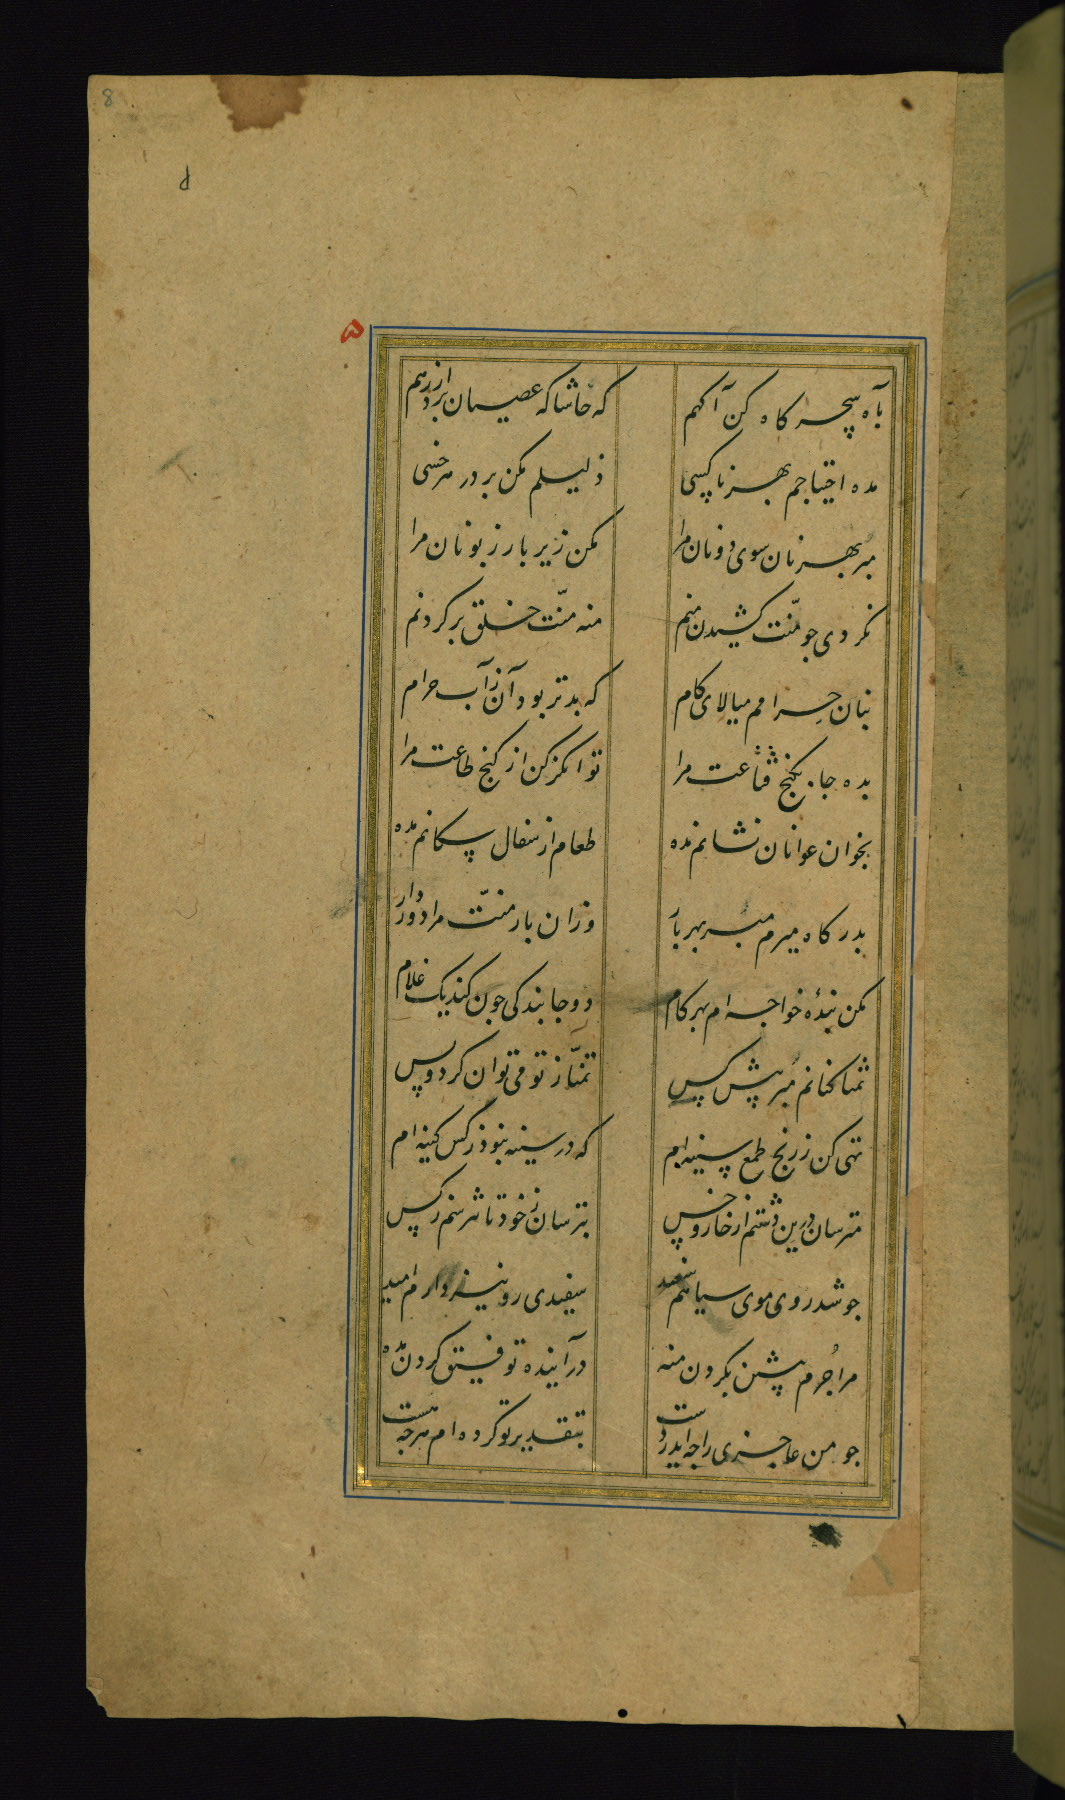 8
۵
بآه سحر کاه کن آکهم که حاشا که عصیان برد از رهم
مده احتیاجم بهر ناکسی ذلیلم مکن بر در هر خسی
مبر بهر نان سوی دونان مرا مکن زیر بار زبونان مرا
نکردی جو منّت کشیدن منم منه منّت خلق بر کردنم
بنان حرامم میالای کام که بدتر بود آن ز آب حرام
بده جا بکنج قناعت مرا توانکر کن از کنج طاعت مرا
بخوان عوانان نشانم مده طعام از سفال سکانم مده
بدر کاه میرم مبر بهر بار وزان بار منّت مرا دور دار
مکن بندهٔ خواجه ام بهر کام دو جا بندکی جون کند یک غلام
تمنا کنانم مبر پیش کس تمنّا ز تو می توان کرد و بس
تهی کن ز رنج طمع سینه ام که در سینه نبود ز کس کینه ام
مترسان درین دشتم از خار و خس بترسان ز خود تا نترسم ز کس
جو شد روی موی سیاهم سفید سفیدی رو نیز دارم امید
مرا جُرم پیشین بکردن منه در آینده توفیق کردن مده
جو من عاجزی را جه آید ز دست بتقدیر تو کرده ام هر جه هست